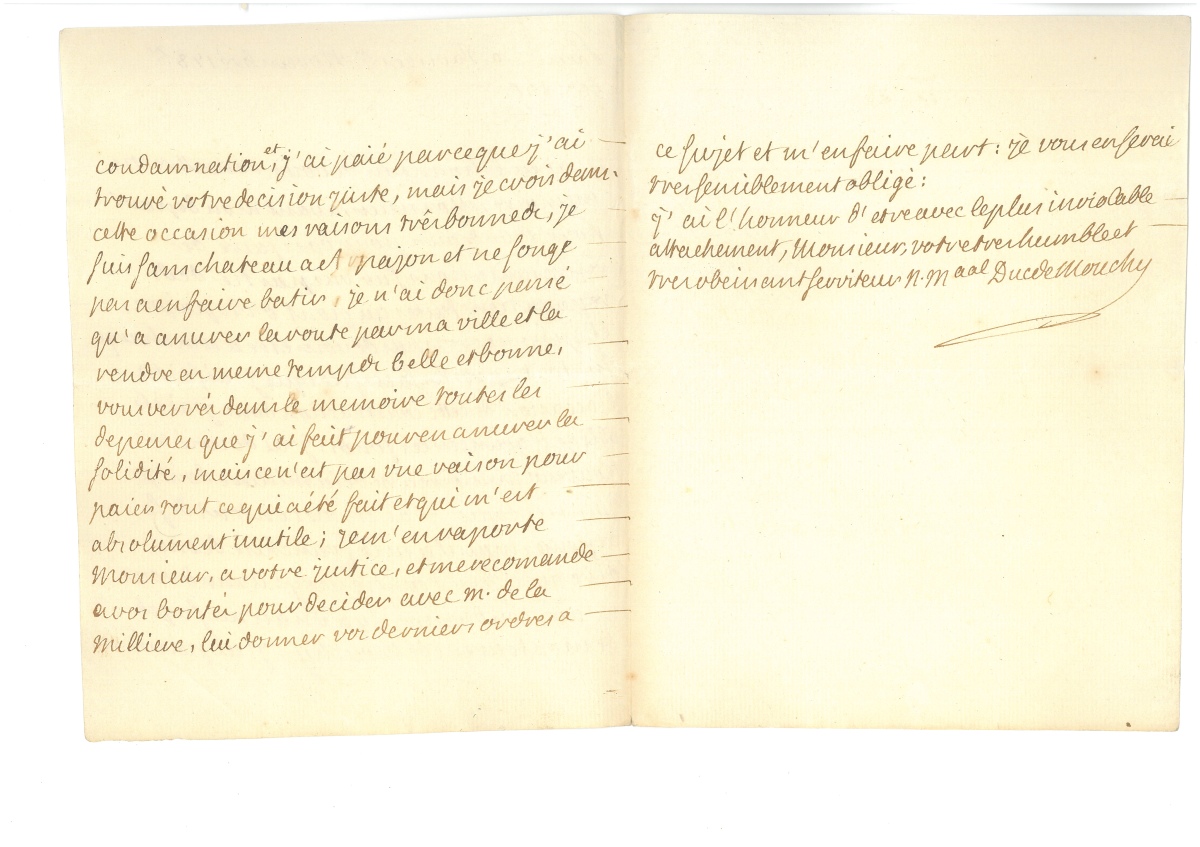 condamnation, et j'ai paié parceque j'ai
trouvè votre decision juste, mais je crois dans
cette occasion mes raisons três bonnes, je
suis sans chateau a arpajon et ne songe
pas a en faire batir, je n'ai donc pensé
qu'a assurer la route par ma ville et la
rendre en meme temps belle et bonne,
vous verrés dans le memoire toutes les
depenses que j'ai fait pour en assurer la
solidité, mais ce n'est pas une raison pour
paier tout ce qui a été fait et qui m'est
absolument inutile; je m'en raporte
Monsieur, a votre justice, et me recomande
a vos bontés pour decider avec m. de la
Milliere, lui donner vos derniers ordres a
ce sujet et m'en faire part: je vous en serai
tres sensiblement obligé:
j'ai l'honneur d'etre avec le plus inviolable
attachement, Monsieur, votre tres humble et
tres obeissant serviteur N. Maal Duc de Mouchy